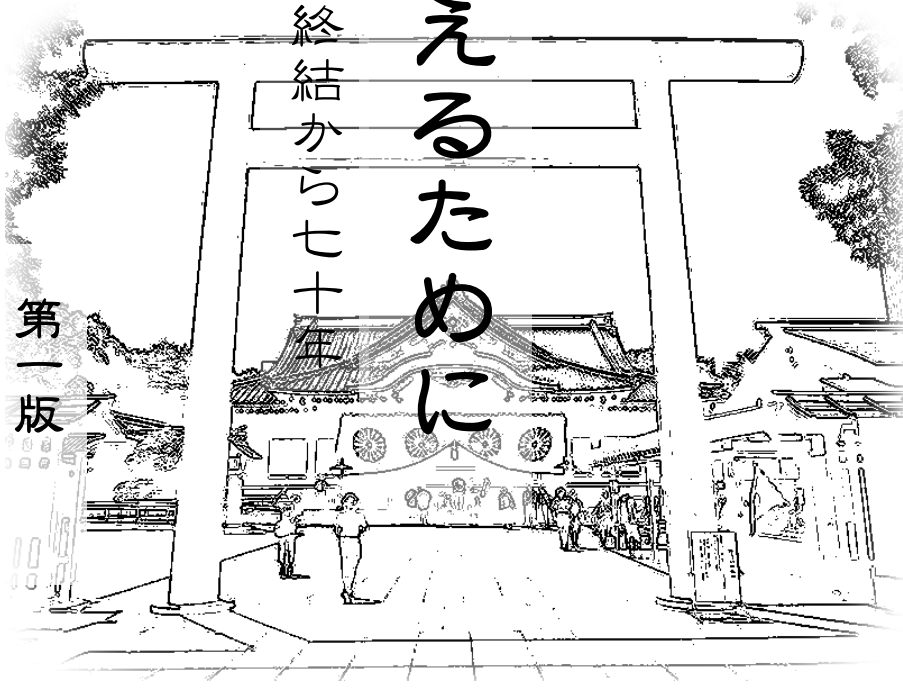 えるために
終結から七十年
第一版